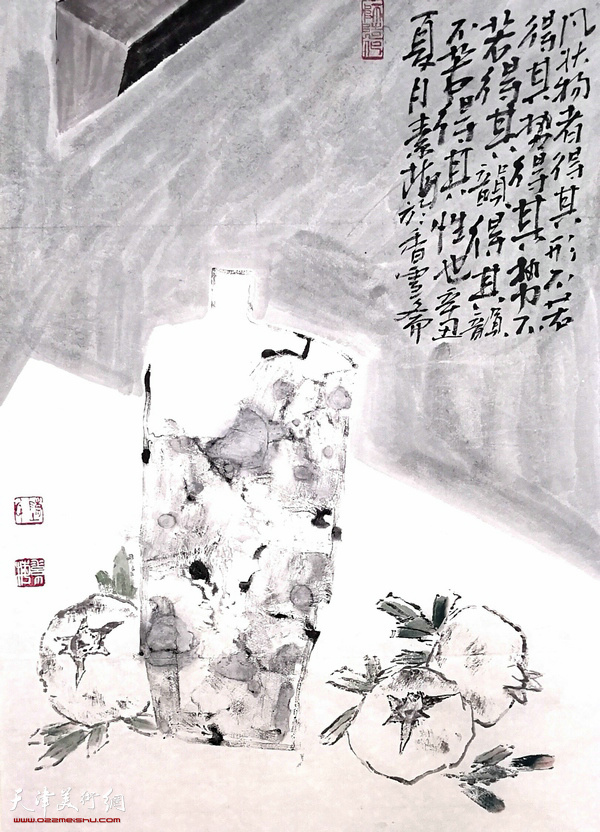 凡状物者得其形不若
得其势得其势不
若得其韻得其韻
不若得其性也辛丑
夏月素梅於香雪斋
天津美术網
www.022meishu.com